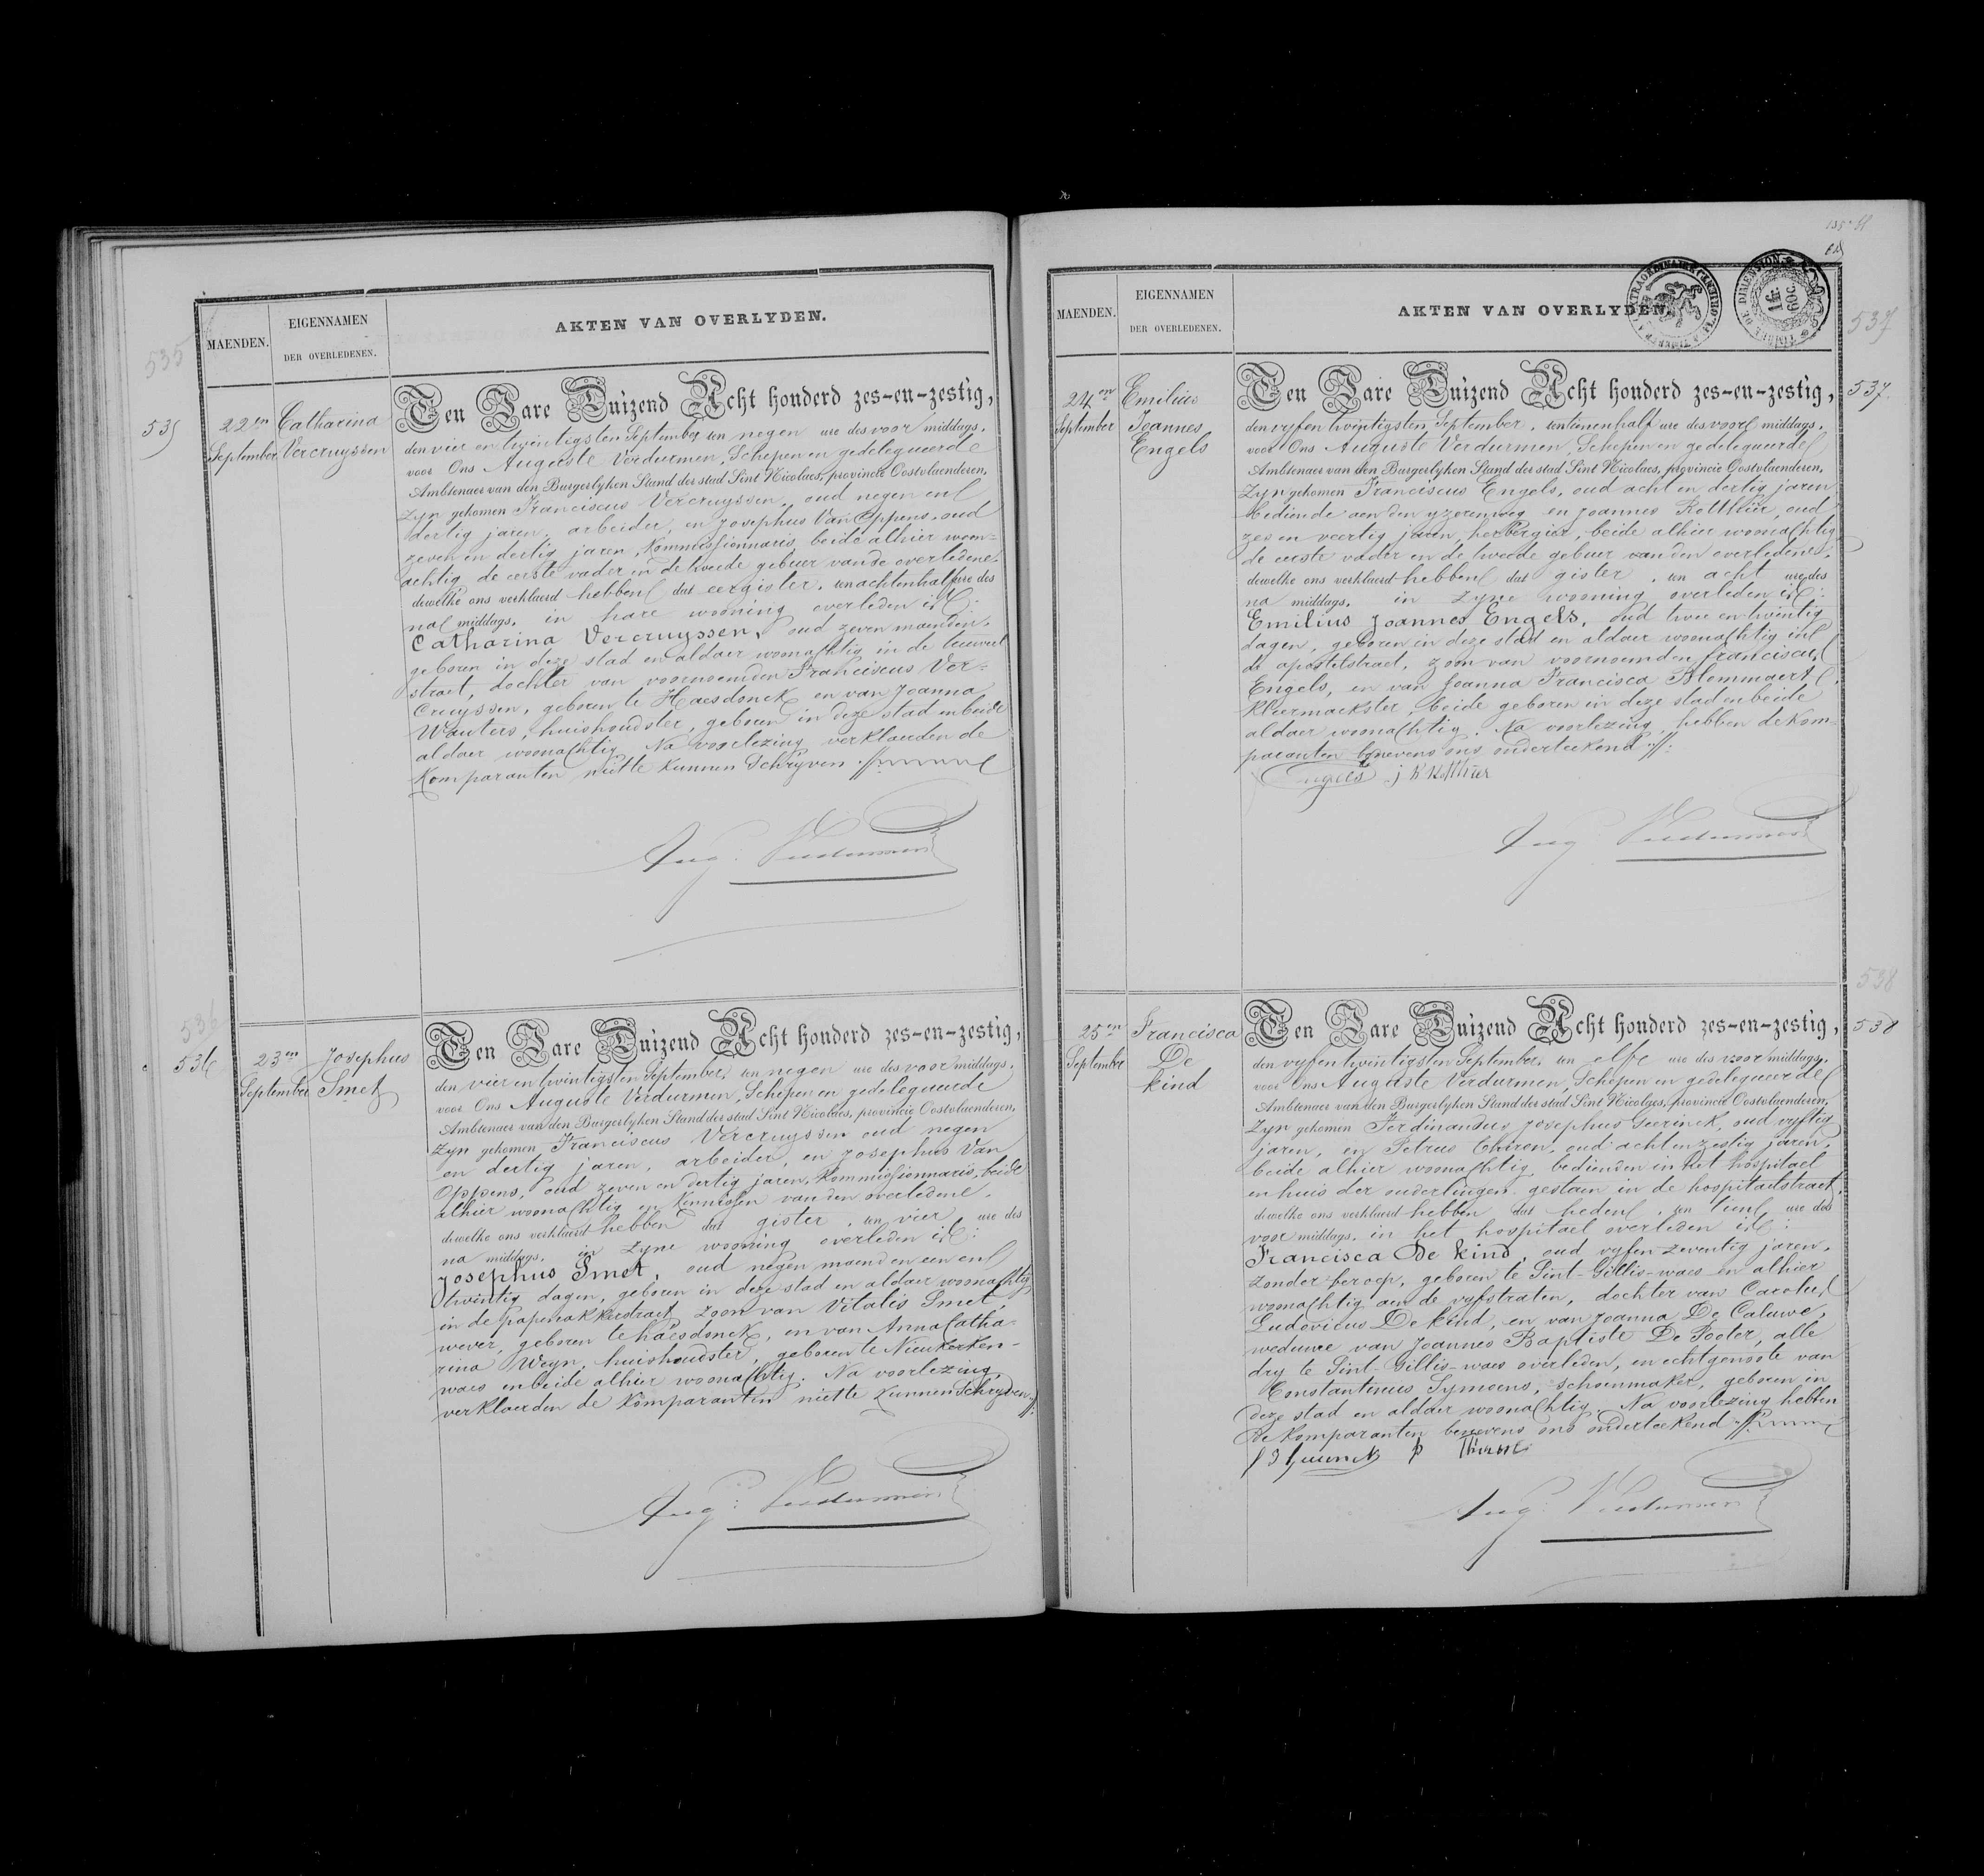 MAENDEN.
EIGENNAMEN
DER OVERLEDENEN.
AKTEN VAN OVERLYDEN.
535
535
22en
September
Catharina
Vercruyssen
Ten Jare Duizend Acht honderd zes-en-zestig,
den vier en twintigsten September, ten negen ure des voor middags,
voor Ons Auguste Verdurmen, Schepen en gedelegueerde
Ambtenaer van den Burgerlyken Stand der stad Sint Nicolaes, provincie Oostvlaenderen,
Zyn gekomen Franciscus Vercruyssen, oud negen en
dertig jaren, arbeider, en Josephus Van Oppens, oud
zeven en dertig jaren, Kommissionnaris, beide alhier woon-
achtig de eerste vader en de tweede gebuer van de overledene,
dewelke ons verklaerd hebben dat eergister, ten achtenhalf ure des
na middags, in hare wooning overleden is:
Catharina Vercruyssen, oud zeven maenden,
geboren in deze stad en aldaer woonachtig in de
straet, dochter van voornoemden Franciscus Ver-
Cruyssen, geboren te Haesdonck en van Joanna
Wauters, huishoudster, geboren in deze stad en beide
aldaer woonachtig. Na voorlezing verklaerden de
Komparanten niet te kunnen Schryven.
Aug: Verdurmen
536
536
23en
September
Josephus
Smet
Ten Jare Duizend Acht honderd zes-en-zestig,
den vier en twintigsten September, ten negen ure des voor middags,
voor Ons Auguste Verdurmen, Schepen en gedelegueerde
Ambtenaer van den Burgerlyken Stand der stad Sint Nicolaes, provincie Oostvlaenderen,
Zyn gekomen Franciscus Vercruyssen oud negen
en dertig jaren, arbeider, en Josephus Van
Oppens, oud zeven en dertig jaren, Kommissionnaris, beide
alhier woonachtig en Kennissen van den overledene,
dewelke ons verklaerd hebben dat gister, ten vier ure des
na middags, in zyne wooning overleden is:
Josephus Smet, oud negen maenden een en
twintig dagen, geboren in deze stad en aldaer woonachtig
in de papenakkerstraet, zoon van Vitalis Smet,
wever, geboren te haesdonck, en van Anna Catha-
rina Weyn, huishoudster, geboren te Nieukerken-
waes en beide alhier woonachtig. Na voorlezing
verklaerden de Komparanten niet te kunnen Schryven
Aug: Verdurmen
MAENDEN.
EIGENNAMEN
DER OVERLEDENEN.
AKTEN VAN OVERLYDEN.
TIMBRE DE DIMENSION
1 fr. 60 c.
537
537.
24en
September
Emilius
Joannes
Engels
Ten Jare Duizend Acht honderd zes-en-zestig,
den vyfen twintigsten September, ten tienenhalf ure des voor middags,
voor Ons Auguste Verdurmen, Schepen en gedelegueerde
Ambtenaer van den Burgerlyken Stand der stad Sint Nicolaes, provincie Oostvlaenderen,
Zyn gekomen Franciscus Engels, oud acht en dertig jaren
bediende aen den yzerenweg en Joannes Rotthier, oud
zes en veertig jaren, herbergier, beide alhier woonachtig
de eerste vader en de tweede gebuer van den overledene,
dewelke ons verklaerd hebben dat gister, ten acht ure des
na middags, in zyne wooning overleden is:
Emilius Joannes Engels, oud twee en twintig
dagen, geboren in deze stad en aldaer woonachtig in
de apostelstraet, zoon van voornoemden franciscus
Engels, en van Joanna Francisca Blommaert,
Kleermaekster, beide geboren in deze stad en beide
aldaer woonachtig. Na voorlezing, hebben de kom-
paranten benevens ons onderteekend
Engels
Aug: Verdurmen
538
538
25en
September
Francisca
De
kind
Ten Jare Duizend Acht honderd zes-en-zestig,
den vyfen twintigsten September, ten elfe ure des voor middags,
voor Ons Auguste Verdurmen, Schepen en gedelegueerde
Ambtenaer van den Burgerlyken Stand der stad Sint Nicolaes, provincie Oostvlaenderen,
Zyn gekomen Ferdinandus Josephus Geerinck, oud vyftig
jaren, en Petrus Thiren, oud achtenzestig jaren,
beide alhier woonachtig, bedienden in het hospitael
en huis der ouderlingen gestaen in de hospitaelstraet,
dewelke ons verklaerd hebben dat heden, ten tien ure des
voor middags, in het hospitael overleden is:
Francisca De Kind, oud vyfen zeventig jaren,
zonder beroep, geboren te Sint-Gillis-waes en alhier
woonachtig aen de vyfstraten, dochter van Carolus
Ludovicus De kind, en van Joanna De Caluwe,
weduwe van Joannes Baptiste De Pooter, alle
dry te Sint-Gillis-waes overleden, en echtgenoote van
Constantinus Symoens, schoenmaker, geboren in
deze stad en aldaer woonachtig. Na voorlezing hebben
de komparanten benevens ons onderteekend
Aug: Verdurmen